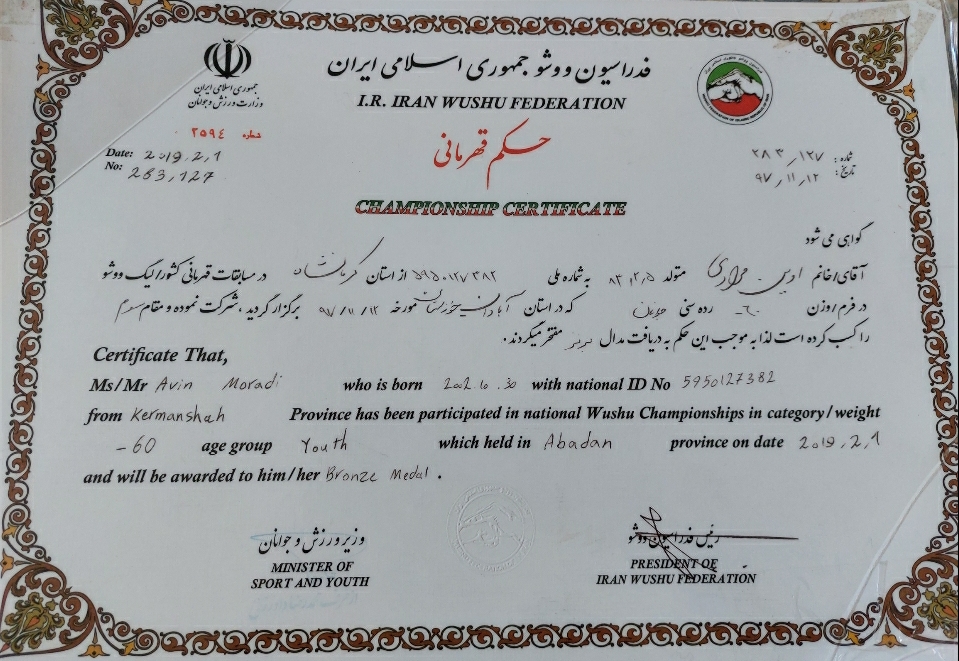 فدراسیون ووشو جمهوری اسلامی ایران
جمهوری اسلامی ایران
وزارت ورزش و جوانان
I.R. IRAN WUSHU FEDERATION
شماره ۲۵۹۴
حکم قهرمانی
Date: 2019,2,1
No: 283,127
شماره: ۲۸۳,۱۲۷
تاریخ: ۹۷,۱۱,۱۲
CHAMPIONSHIP CERTIFICATE
گواهی می شود
آقای/خانم مرادی متولد به شماره ملی ۵۹۵۰۱۲۷۳۸۲ از استان کرمانشاه در مسابقات قهرمانی کشور/لیگ ووشو
در فرم/وزن ۶۰- رده سنی که در استان مورخه ۹۷/۱۱/۱۲ برگزار گردید، شرکت نموده و مقام سوم
را کسب کرده است لذا به موجب این حکم به دریافت مدال برنز مفتخر میگردند.
Certificate That,
Ms/Mr Avin Moradi who is born with national ID No 5950127382
from Kermanshah Province has been participated in national Wushu Championships in category/weight
-60 age group Youth which held in Abadan province on date 2019,2,1
and will be awarded to him/her Bronze Medal .
وزیر ورزش و جوانان
MINISTER OF
SPORT AND YOUTH
رئیس فدراسیون ووشو
PRESIDENT OF
IRAN WUSHU FEDERATION